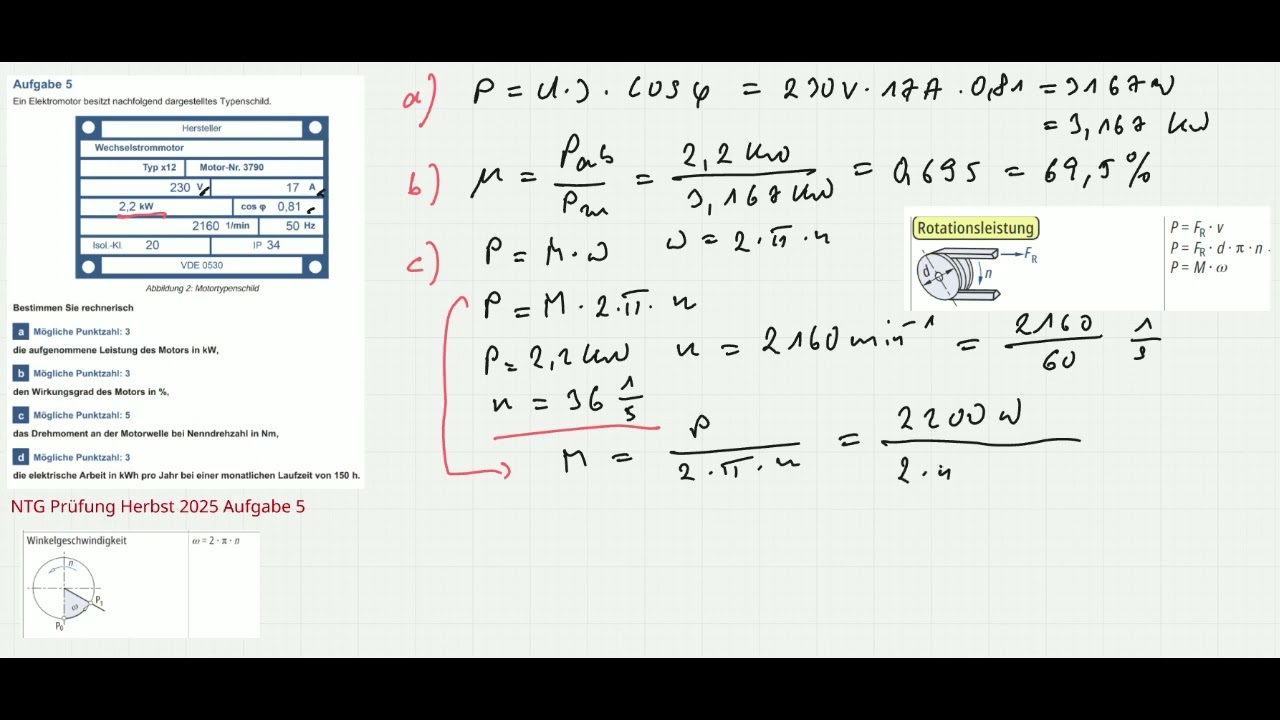 Aufgabe 5
Ein Elektromotor besitzt nachfolgend dargestelltes Typenschild.
Hersteller
Wechselstrommotor
Typ x12 Motor-Nr. 3790
230 V 17 A
2,2 kW cos φ 0,81
2160 1/min 50 Hz
Isol.-Kl. 20 IP 34
VDE 0530
Abbildung 2: Motortypenschild
Bestimmen Sie rechnerisch
a Mögliche Punktzahl: 3
die aufgenommene Leistung des Motors in kW,
b Mögliche Punktzahl: 3
den Wirkungsgrad des Motors in %,
c Mögliche Punktzahl: 5
das Drehmoment an der Motorwelle bei Nenndrehzahl in Nm,
d Mögliche Punktzahl: 3
die elektrische Arbeit in kWh pro Jahr bei einer monatlichen Laufzeit von 150 h.
NTG Prüfung Herbst 2025 Aufgabe 5
Winkelgeschwindigkeit ω = 2 · π · n
n
ω
P₁
P₀
a) P = U · I · cos φ = 230 V · 17 A · 0,81 = 3167 W
= 3,167 kW
b) μ = Pab / Pzu = 2,2 kW / 3,167 kW = 0,695 = 69,5 %
c) P = M · ω ω = 2 · π · n
Rotationsleistung
d
n
F_R
P = F_R · v
P = F_R · d · π · n ·
P = M · ω
P = M · 2 · π · n
P = 2,2 kW n = 2160 min⁻¹ = 2160 / 60 1/s
n = 36 1/s
M = P / 2 · π · n = 2200 W / 2 · π